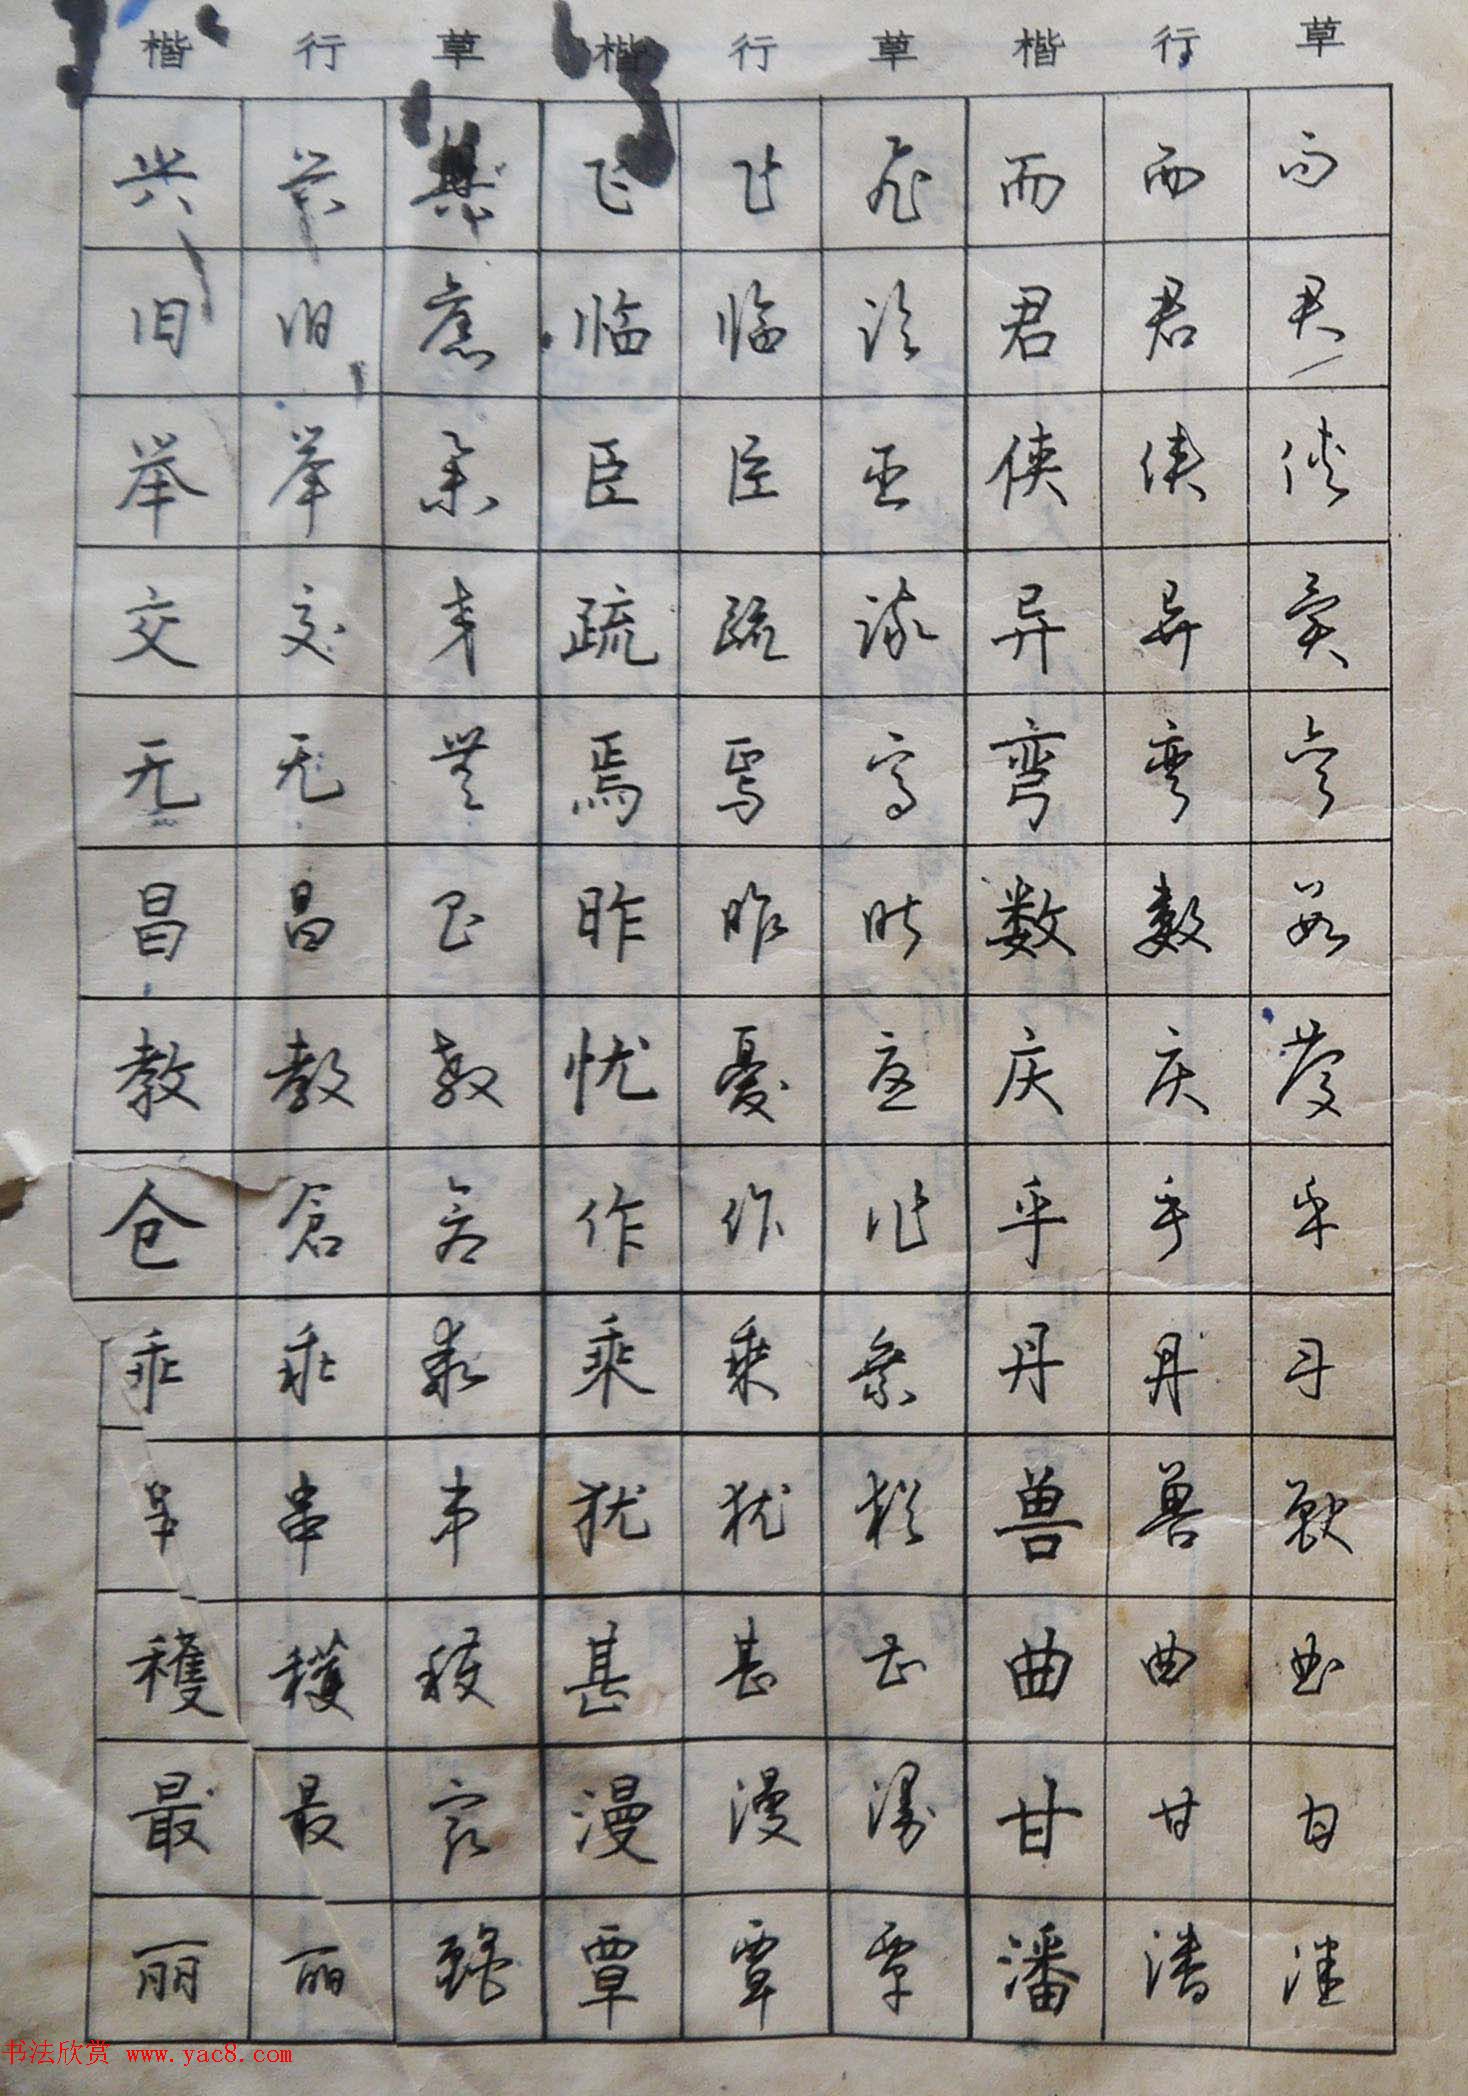 楷 行 草 楷 行 草 楷 行 草
兴 兴 飞 飞 飛 而 而 而
旧 旧 舊 临 临 临 君 君 君
举 举 举 臣 臣 臣 侠 侠 侠
交 交 交 疏 疏 疏 异 异 異
无 无 無 焉 焉 焉 弯 弯 弯
昌 昌 昌 昨 昨 昨 数 数 数
教 教 教 忧 憂 憂 庆 庆 慶
仓 倉 倉 作 作 作 乎 乎 乎
乖 乖 乖 乘 乘 乘 丹 丹 丹
串 串 犹 犹 猶 兽 兽 獸
穫 穫 穫 甚 甚 甚 曲 曲 曲
最 最 最 漫 漫 漫 甘 甘 甘
丽 丽 麗 覃 覃 覃 潘 潘 潘
书法欣赏 www.yac8.com